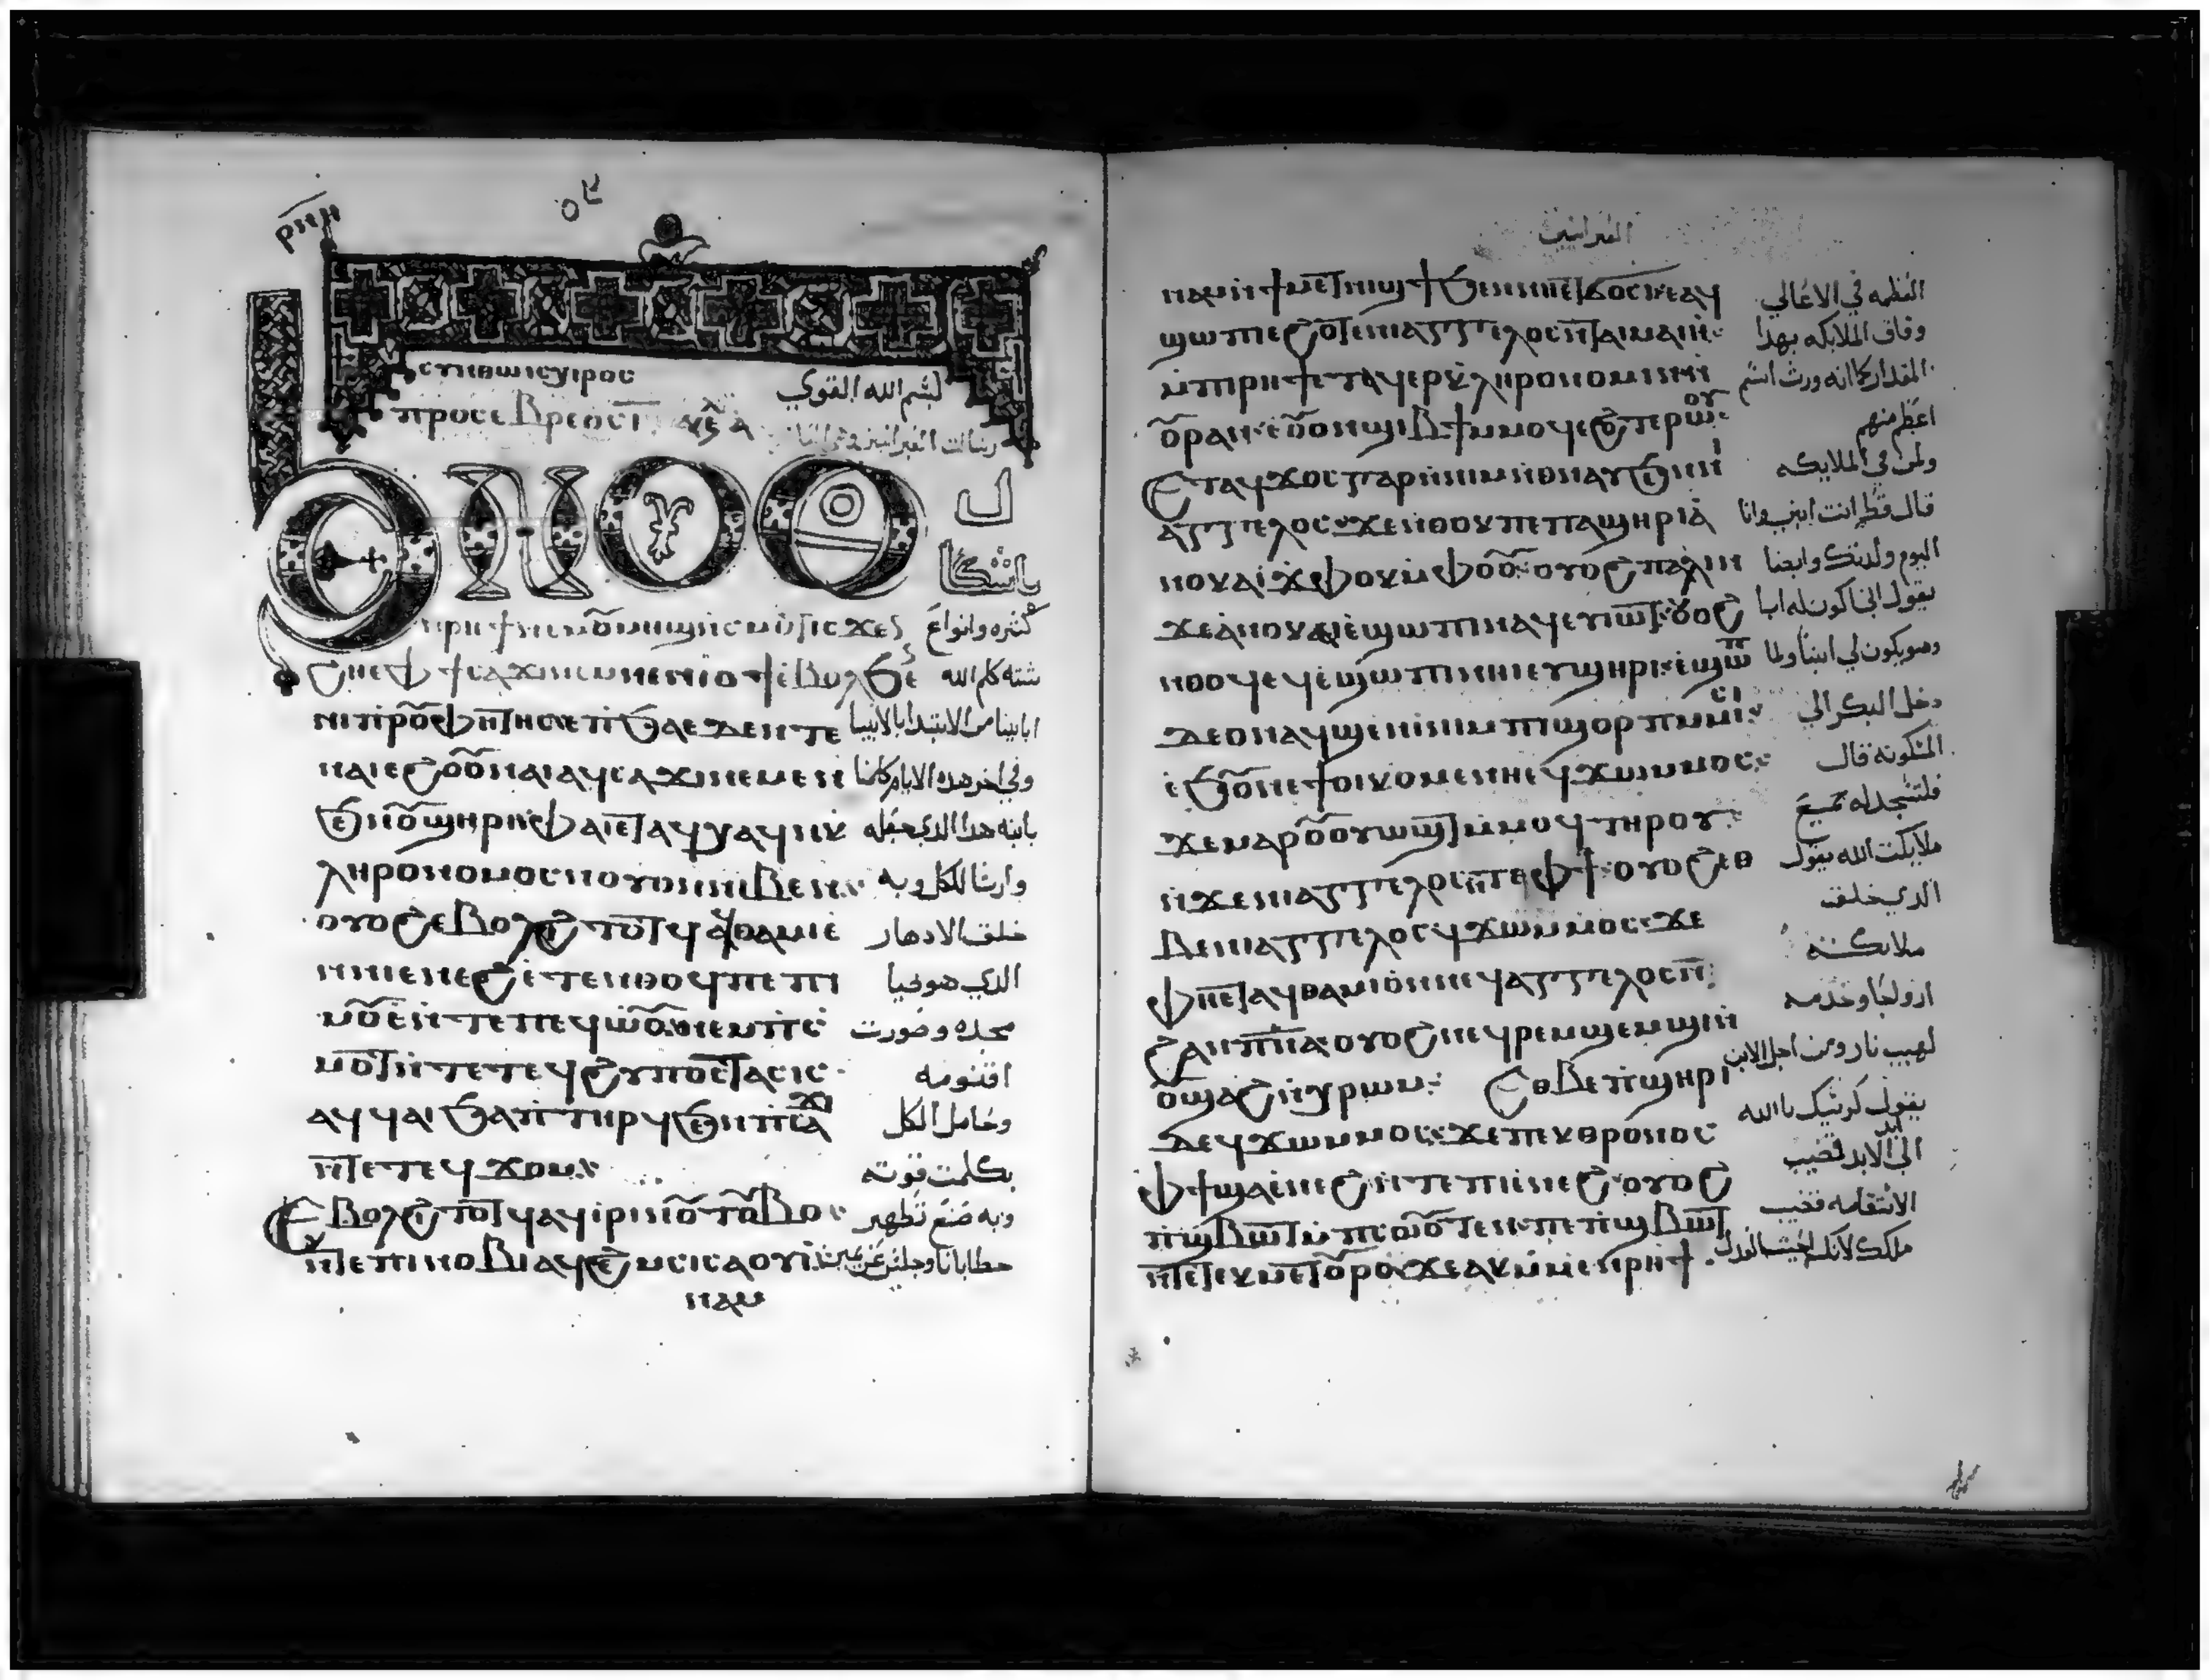 ⲣⲡⲏ
ⲥⲩⲛⲑⲱⲓⲥⲩⲓⲣⲟⲥ بسم الله القوي
ⲡⲣⲟⲥⲉⲃⲣⲉⲟⲥ رسالت العبرانيين
ϧⲛⲟⲑ ل
باشكال
ⲛⲣⲏϯ ⲛⲉⲙⲟⲩⲙⲏϣ ⲛⲥⲙⲟⲧ ⲓⲥϫⲉ كثيره وانواع
ϩⲏⲉ ⲫϯ ⲥⲁϫⲓ ⲛⲉⲙⲛⲉⲛⲓⲟϯ ⲉⲃⲟⲗϧⲉ شته كلم الله
ⲛⲓⲡⲣⲟⲫⲏⲧⲏⲥ ⲉⲡϧⲁⲉ ⲇⲉⲛⲧⲉ ابايينا من الابتدا بالانبيا
ⲛⲁⲓⲉϩⲟⲟⲩ ⲛⲁⲓ ⲁϥⲥⲁϫⲓ ⲛⲉⲙⲉⲛ وفي اخر هده الايام كلمنا
ϧⲉⲛⲡⲟϣⲏⲣⲓ ⲫⲁⲓ ⲉⲧⲁϥⲭⲁϥ ⲛⲕ بابنه هدا الدي جعله
ⲗⲏⲣⲟⲛⲟⲙⲟⲥ ⲛⲟⲩⲟⲛ ⲛⲓⲃⲉⲛ وارثا للكل وبه
ⲟⲩⲟϩ ⲉⲃⲟⲗϩⲓⲧⲟⲧϥ ⲁϥⲑⲁⲙⲓⲉ خلق الادهار
ⲛⲓⲉⲛⲉϩ ⲉⲧⲉⲛⲑⲟϥ ⲡⲉ ⲡⲓ الدي هو ضيا
ⲙⲟⲩⲉ ⲛⲧⲉⲡⲉϥⲱⲟⲩ ⲛⲉⲙ ⲡⲥ مجده وصورت
ⲙⲟⲧ ⲛⲧⲉⲧⲉϥϩⲩⲡⲟⲥⲧⲁⲥⲓⲥ اقنومه
ⲁϥϥⲁⲓ ϧⲁⲡⲧⲏⲣϥ ϧⲉⲛⲡⲥⲁϫⲓ وحامل الكل
ⲛⲧⲉⲧⲉϥϫⲟⲙ بكلمت قوته
ⲉⲃⲟⲗϩⲓⲧⲟⲧϥ ⲁϥⲓⲣⲓ ⲛⲟⲩⲧⲟⲩⲃⲟ وبه صنع تطهير
ⲛⲧⲉⲛⲓⲛⲟⲃⲓ ⲁϥϩⲉⲙⲥⲓ ⲥⲁⲟⲩⲓ خطايانا وجلس عن يمين
ⲛⲁⲙ
العبرانيين
ⲛⲁⲙ ⲛϯⲙⲉⲧⲛⲓϣϯ ϧⲉⲛⲛⲏⲉⲧϭⲟⲥⲓ ⲛⲉⲁϥ العظمه في الاعالي
ϣⲱⲡⲓ ⲉϥⲥⲟⲧⲡ ⲉⲛⲓⲁⲅⲅⲉⲗⲟⲥ ⲛⲧⲁⲓⲙⲁⲓⲏ وفاق الملايكه بهدا
ⲙⲡⲣⲏϯ ⲉⲧⲁϥⲉⲣⲕⲗⲏⲣⲟⲛⲟⲙⲓⲛ المقدار كما انه ورث اسم
ⲟⲩⲣⲁⲛ ⲉⲩⲟⲛϣⲓⲃϯ ⲙⲙⲟϥ ⲉϩⲟⲧⲉⲣⲱⲟⲩ اعظم منهم
ⲉⲧⲁϥϫⲟⲥ ⲅⲁⲣ ⲛⲛⲓⲙ ⲛⲓⲑⲛⲁⲩ ϧⲉⲛⲛⲓ ولمن في الملايكه
ⲁⲅⲅⲉⲗⲟⲥ ϫⲉⲛⲑⲟⲕ ⲡⲉ ⲡⲁϣⲏⲣⲓ ⲁ قال قط انت ابني وانا
ⲛⲟⲕ ⲁⲓϫⲫⲟⲕ ⲙⲫⲟⲟⲩ ⲟⲩⲟϩ ⲡⲁⲗⲓⲛ اليوم ولدتك وايضا
ϫⲉⲁⲛⲟⲕ ⲉⲓⲉϣⲱⲡⲓ ⲛⲁϥ ⲉⲩⲓⲱⲧ ⲟⲩⲟϩ يقول اني اكون له ابا
ⲛⲑⲟϥ ⲉϥⲉϣⲱⲡⲓ ⲛⲏⲓ ⲉⲩϣⲏⲣⲓ ⲉϣⲱⲡ وهو يكون لي ابنا ولما
ⲇⲉⲟⲛ ⲁϥϣⲁⲛⲓⲛⲓ ⲙⲡⲓϣⲟⲣⲡ ⲙⲙⲓⲥⲓ دخل البكر الي
ⲉϧⲟⲩⲛ ⲉϯⲟⲓⲕⲟⲩⲙⲉⲛⲏ ϥϫⲱ ⲙⲙⲟⲥ المسكونه قال
ϫⲉⲙⲁⲣⲟⲩⲟⲩⲱϣⲧ ⲙⲙⲟϥ ⲧⲏⲣⲟⲩ فلتسجد له جميع
ⲛϫⲉⲛⲓⲁⲅⲅⲉⲗⲟⲥ ⲛⲧⲉⲫϯ ⲟⲩⲟϩ ⲉⲑ ملايكت الله يقول
ⲃⲉⲛⲓⲁⲅⲅⲉⲗⲟⲥ ϥϫⲱ ⲙⲙⲟⲥ ϫⲉ الدي خلق
ⲫⲏⲉⲧⲁϥⲑⲁⲙⲓⲟ ⲛⲛⲉϥⲁⲅⲅⲉⲗⲟⲥ ⲛ ملايكته
ϩⲁⲛⲡⲛⲁ ⲟⲩⲟϩ ⲛⲉϥⲣⲉϥϣⲉⲙϣⲓ ⲛ ارواحا وخدمه
ⲟⲩϣⲁϩ ⲛⲭⲣⲱⲙ ⲉⲑⲃⲉ ⲡϣⲏⲣⲓ لهيب نار ومن اجل الابن
ⲇⲉ ϥϫⲱ ⲙⲙⲟⲥ ϫⲉⲡⲉⲕⲑⲣⲟⲛⲟⲥ يقول كرسيك يا الله
ⲫϯ ϣⲁⲉⲛⲉϩ ⲛⲧⲉⲡⲓⲉⲛⲉϩ ⲟⲩⲟϩ الي الابد قضيب
ⲡϣⲃⲱⲧ ⲙⲡⲥⲱⲟⲩⲧⲉⲛ ⲡⲉ ⲡϣⲃⲱⲧ الاستقامه قضيب
ⲛⲧⲉⲧⲉⲕⲙⲉⲧⲟⲩⲣⲟ ϫⲉⲁⲕⲙⲉⲛⲣⲉ ملكك لانك احببت العدل